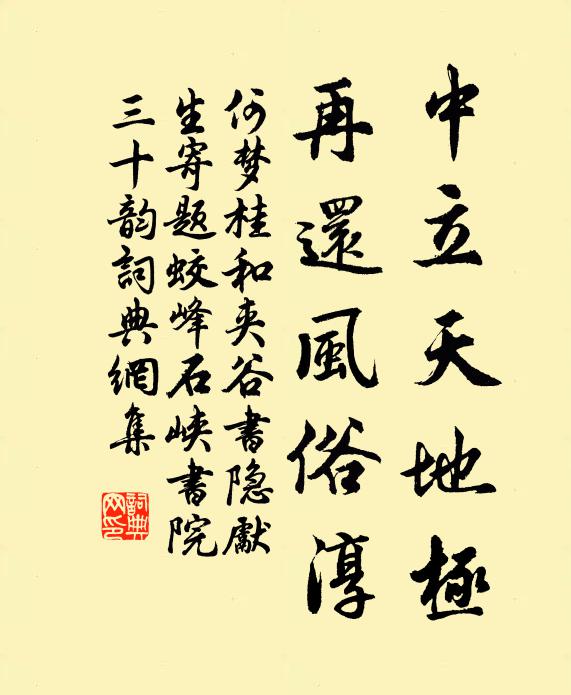 中立天地極
再還風俗淳
何梦桂和夹谷書隐獻
生寄题蛟峰石峡書院
三十韵詞典網集
詞典網印